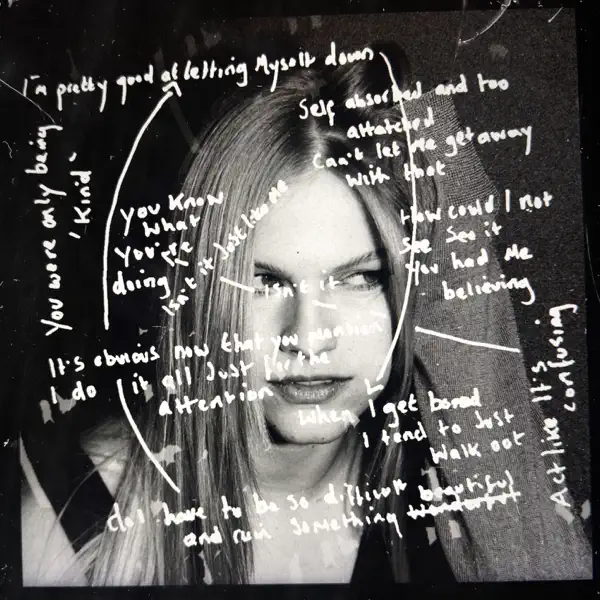 I'm pretty good at letting Myself down
Self absorbed and too
attatched
Can't let me get away
with that
You were only being
'Kind'
You Know
What
You're
doing
Isn't it Just like Me
Isn't it
How could I not
See
it
You had Me
believing
It's obvious now that you mention
I do it all Just for the
attention
When I get bored
I tend to Just
Walk out
Act like It's
confusing
do I have to be so difficult
and ruin Something beautiful
wonderful